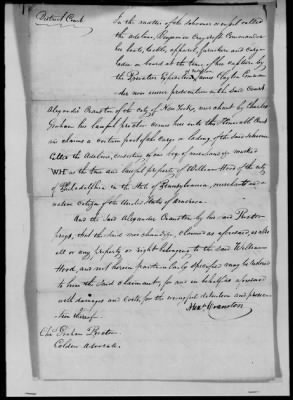 District Court
In the matter of the schooner or vessel called
the Adeline, Benjamin Craycroft Commander
her boats, tackle, apparel, furniture and cargo
laden on board at the time of her capture by
the Privateer Expedition James Clayton Comman
der now under prosecution in the said Court
Alexander Cranston of the city of New York, merchant by Charles
Graham his lawful proctor comes here into the Honorable Court
and claims a certain part of the cargo or lading of the said schooner
called the Adeline, consisting of one bag of merchandize marked
WH as the true and lawful property of William Hood of the city
of Philadelphia in the State of Pennsylvania, merchant and a
native citizen of the United States of America.
And the said Alexander Cranston by his said Proctor
prays, that the said merchandize, claimed as aforesaid, as also
all or any property or right belonging to the said William
Hood, and not herein particularly specified may be restored
to him the said claimant for and in behalf as aforesaid
well damages and costs for the wrongful detention and prosecu
tion thereof.
Alexr Cranston
Chs Graham Proctor
Colden Advocate.